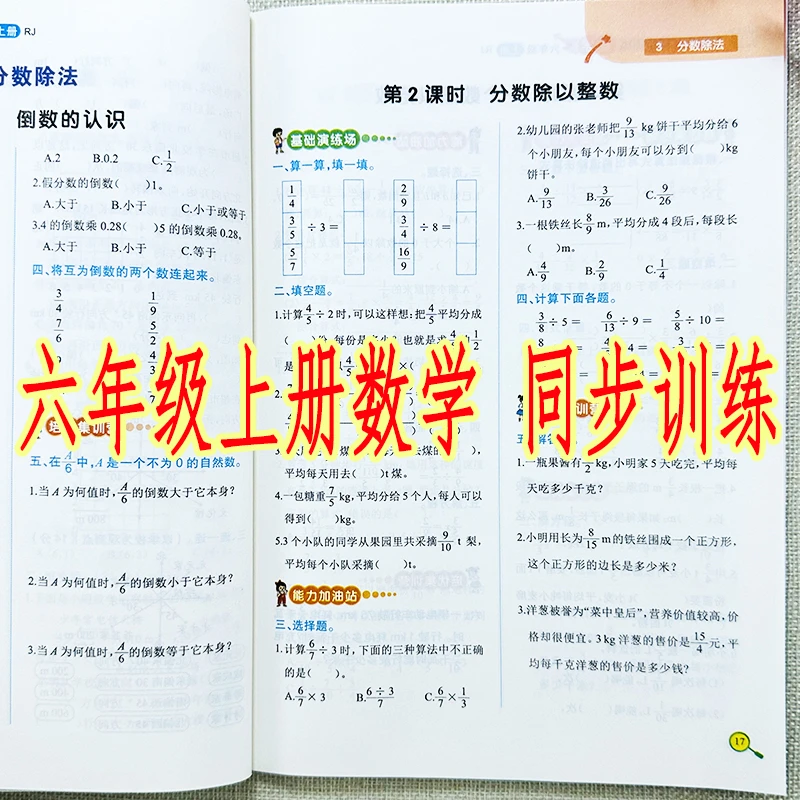 上册 RJ
分数除法
倒数的认识
A.2 B.0.2 C.1/2
2.假分数的倒数( )1。
A.大于 B.小于 C.小于或等于
3.4的倒数乘0.28( )5的倒数乘0.28。
A.大于 B.小于 C.等于
四、将互为倒数的两个数连起来。
3/4 1/9
7/6 5/2
9 4/3
六年级上册数学 同步训练
五、在A/6中,A是一个不为0的自然数。
1.当A为何值时,A/6的倒数大于它本身?
2.当A为何值时,A/6的倒数小于它本身?
3.当A为何值时,A/6的倒数等于它本身?
3 分数除法
第2课时 分数除以整数
基础演练场
一、算一算,填一填。
1/4 2/9
3/5 ÷3= 3/4 ÷8=
5/7 16/9
二、填空题。
1.计算4/5÷2时,可以这样想:把4/5平均分成
平均每天用去( )t煤。
4.一包糖重7/5 kg,平均分给5个人,每人可以
得到( )kg。
5.3个小队的同学从果园里共采摘9/10 t 梨,
平均每个小队采摘( )t。
能力加油站
三、选择题。
1.计算6/7÷3时,下面的三种算法中不正确
的是( )。
A.6/7×3 B.6÷3/7 C.6/7×1/3
2.幼儿园的张老师把9/13 kg饼干平均分给6
个小朋友,每个小朋友可以分到( )kg
饼干。
A.9/13 B.3/26 C.9/26
3.一根铁丝长8/9 m,平均分成4段后,每段长
( )m。
A.4/9 B.2/9 C.1/4
四、计算下面各题。
3/8÷5= 6/13÷9= 5/8÷10=
1.一瓶果酱有1/2 kg,小明家5天吃完,平均每
天吃多少千克?
2.小明用长为8/15 m的铁丝围成一个正方形,
这个正方形的边长是多少米?
3.洋葱被誉为“菜中皇后”,营养价值较高,价
格却很便宜。3 kg洋葱的售价是15/4元,平
均每千克洋葱的售价是多少钱?
17